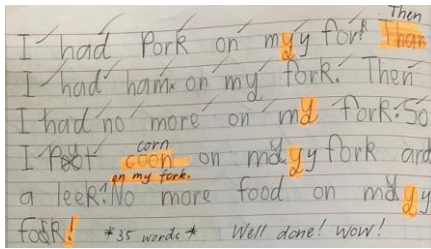 Then
I had Pork on my fork Than
I had ham on my fork. Then
I had no more on my fork. So
corn
I put coon on my fork and
on my fork.
a leek. No more food on my
fork! *35 words* Well done! Wow!